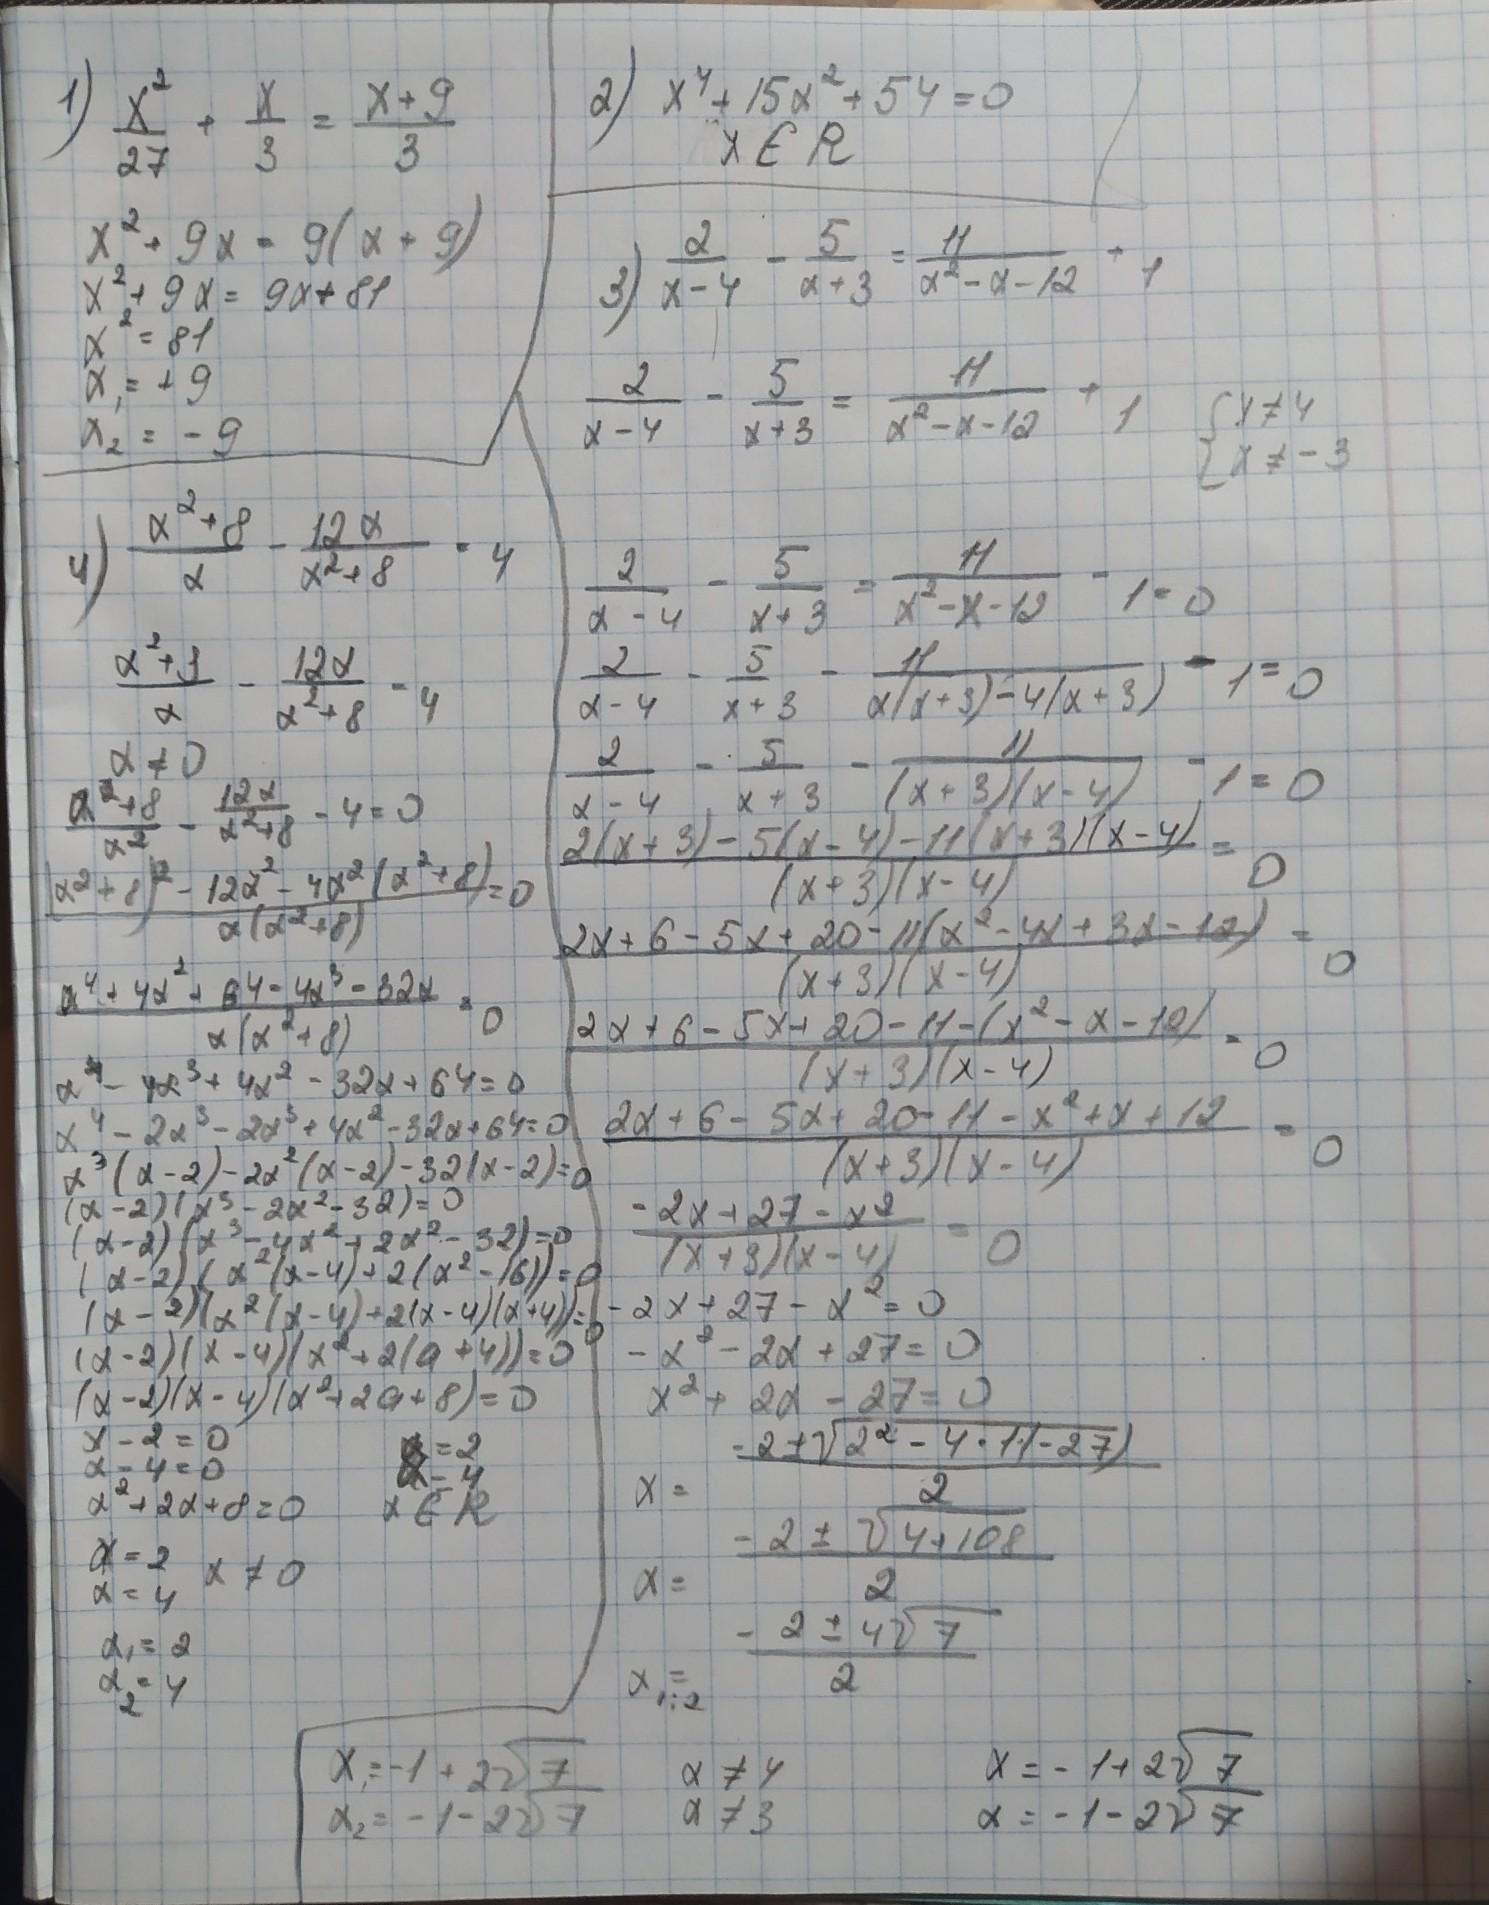 1) x²/27 + x/3 = (x+9)/3
x² + 9x = 9(x + 9)
x² + 9x = 9x + 81
x² = 81
x₁ = +9
x₂ = -9
2) x⁴ + 15x² + 54 = 0
x ∈ R
3) 2/(x-4) - 5/(x+3) = 11/(x²-x-12) + 1
2/(x-4) - 5/(x+3) = 11/(x²-x-12) + 1 { x ≠ 4
x ≠ -3
2/(x-4) - 5/(x+3) = 11/(x²-x-12) - 1 = 0
2/(x-4) - 5/(x+3) - 11/(x(x+3)-4(x+3)) - 1 = 0
2/(x-4) - 5/(x+3) - 11/((x+3)(x-4)) - 1 = 0
(2(x+3)-5(x-4)-11(x+3)(x-4))/((x+3)(x-4)) = 0
(2x+6-5x+20-11(x²-4x+3x-12))/((x+3)(x-4)) = 0
(2x+6-5x+20-11-(x²-x-12))/((x+3)(x-4)) = 0
(2x+6-5x+20-11-x²+x+12)/((x+3)(x-4)) = 0
(-2x+27-x²)/((x+3)(x-4)) = 0
-2x+27-x² = 0
-x²-2x+27 = 0
x²+2x-27 = 0
x = (-2±√(2²-4·1·(-27)))/2
x = (-2±√(4+108))/2
x₁;₂ = (-2±4√7)/2
x₁ = -1+2√7 x ≠ 4 x = -1+2√7
x₂ = -1-2√7 x ≠ 3 x = -1-2√7
4) (x²+8)/x - 12x/(x²+8) = 4
(x²+8)/x - 12x/(x²+8) = 4
x ≠ 0
(x²+8)/x² - 12x/(x²+8) - 4 = 0
((x²+8)²-12x²-4x²(x²+8))/(x(x²+8)) = 0
(x⁴+4x²+64-4x³-32x)/(x(x²+8)) = 0
x⁴-4x³+4x²-32x+64=0
x⁴-2x³-2x³+4x²-32x+64=0
x³(x-2)-2x²(x-2)-32(x-2)=0
(x-2)(x³-2x²-32)=0
(x-2)(x³-4x²+2x²-32)=0
(x-2)(x²(x-4)+2(x²-16))=0
(x-2)(x²(x-4)+2(x-4)(x+4))=0
(x-2)(x-4)(x²+2(a+4))=0
(x-2)(x-4)(x²+2a+8)=0
x-2=0 x=2
x-4=0 x=4
x²+2x+8=0 x∈R
x=2
x=4 x≠0
x₁=2
x₂=4